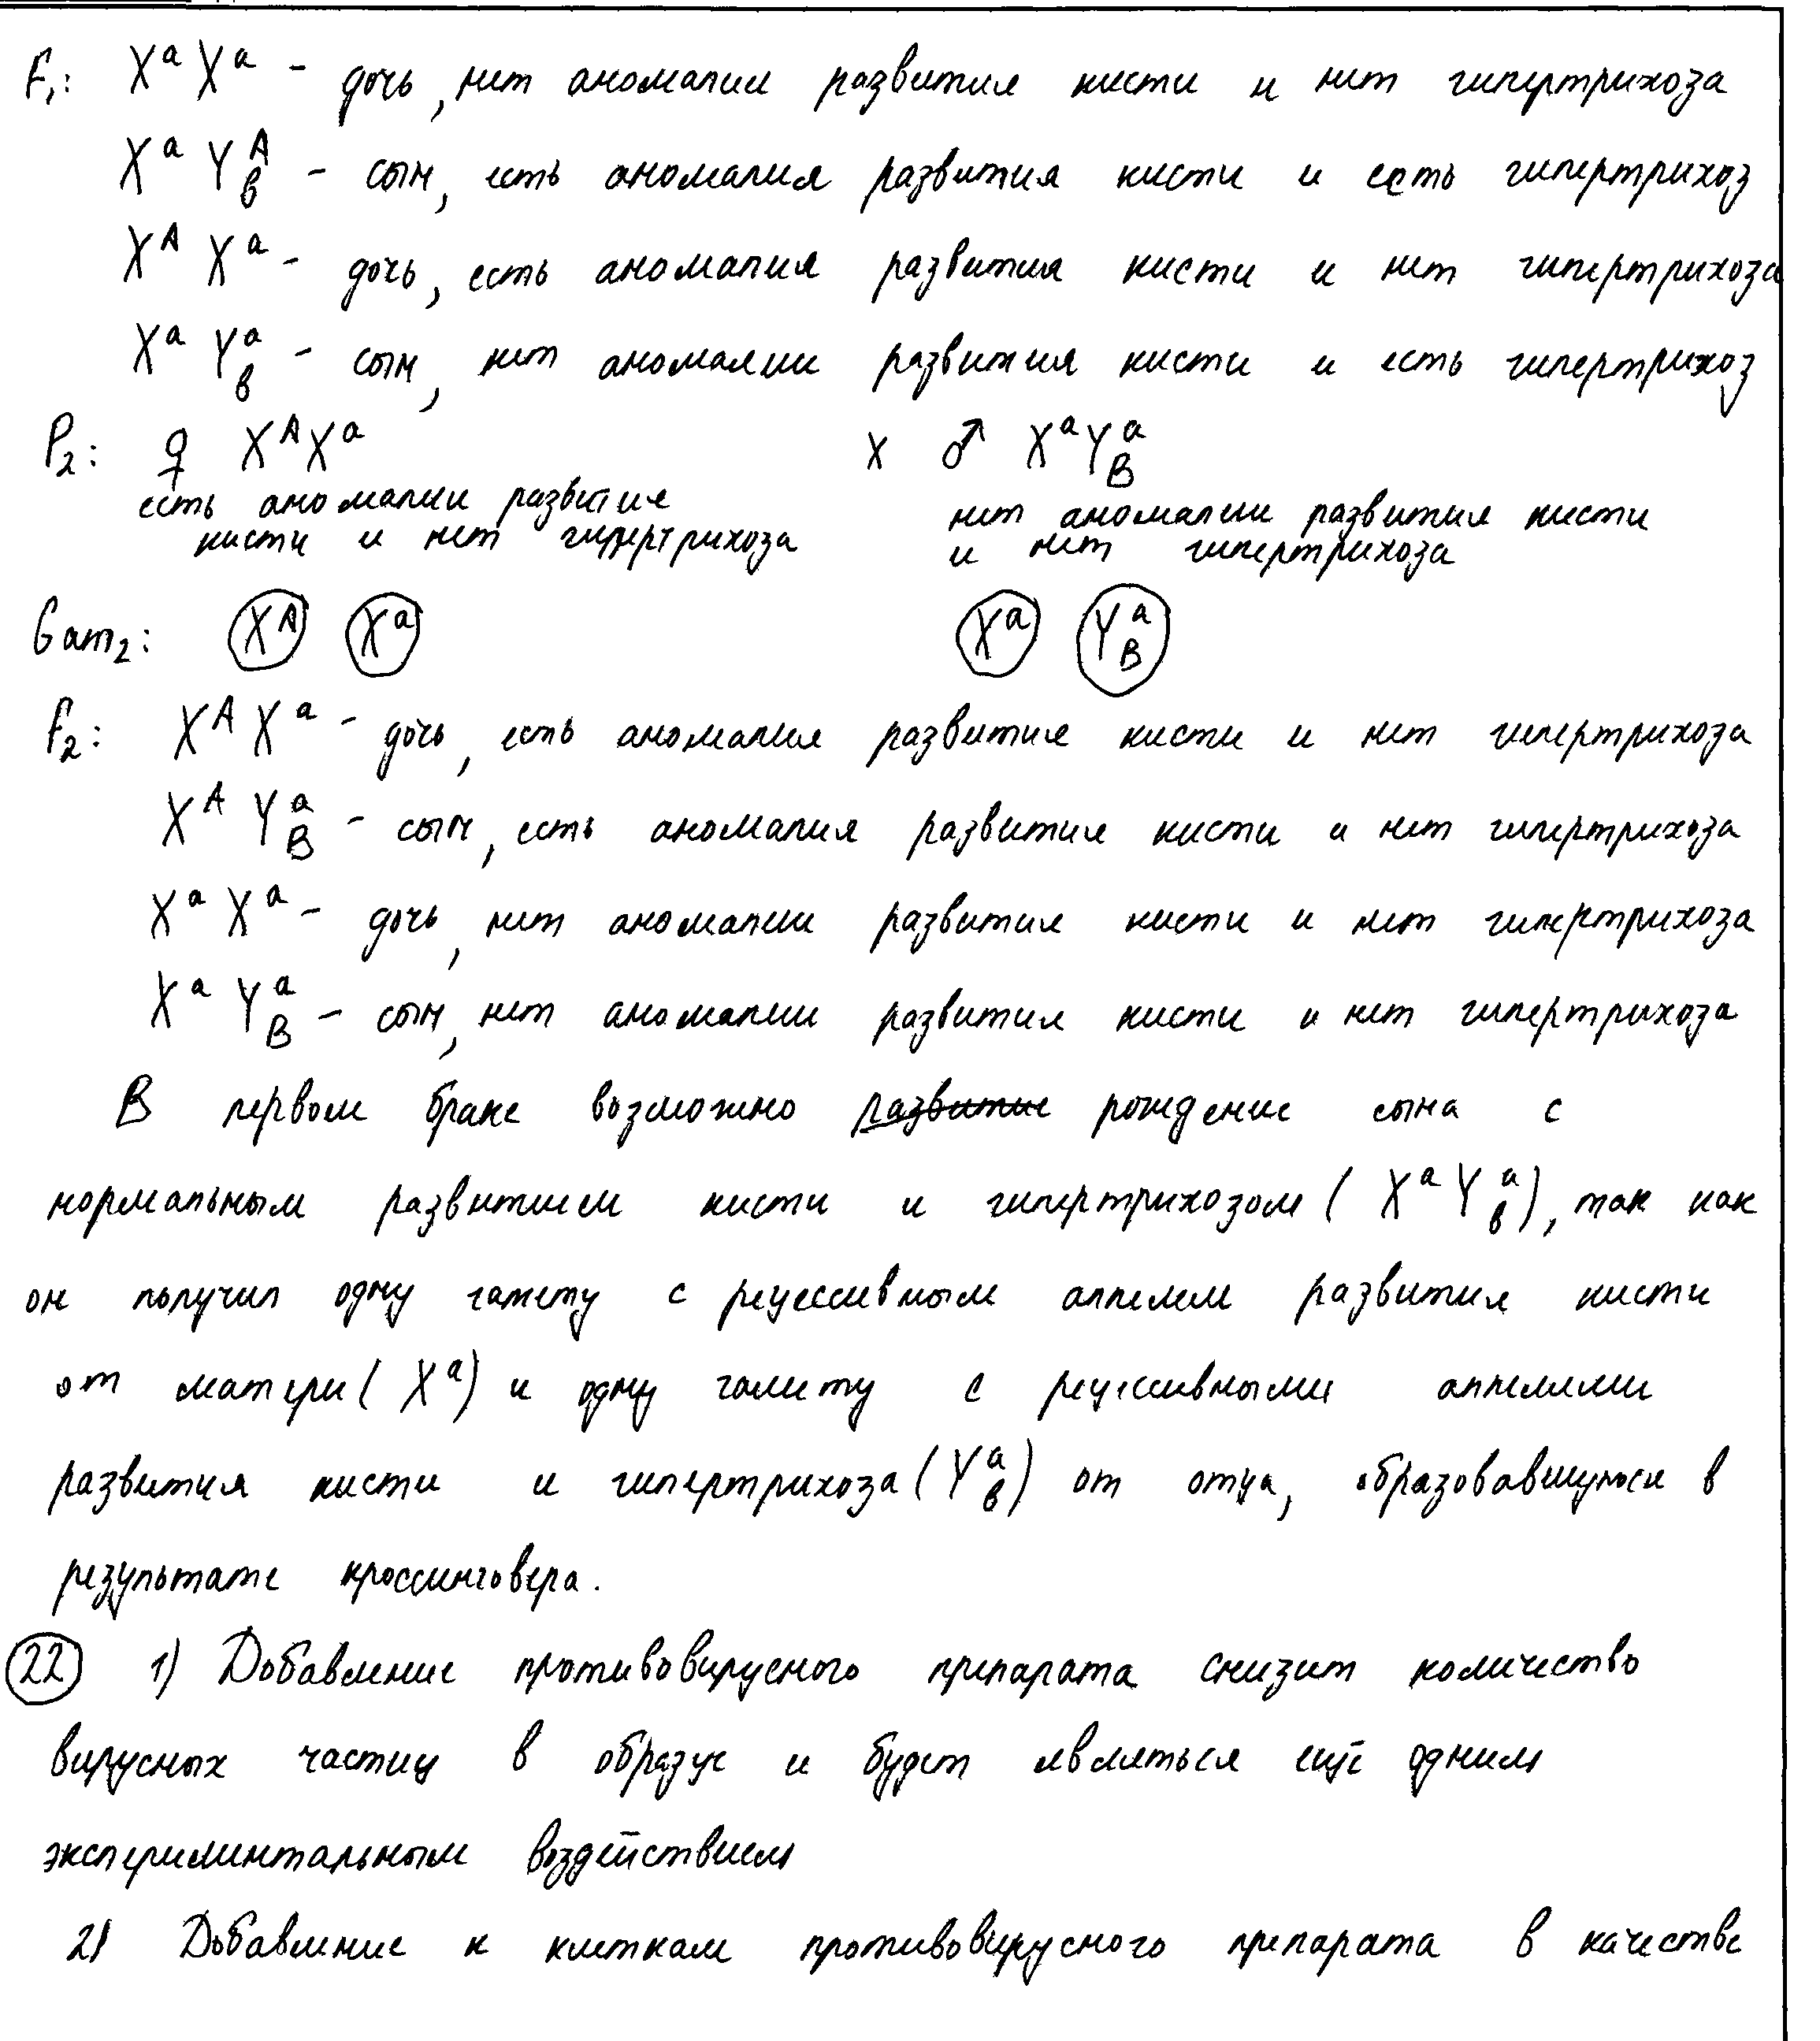 F₁: XᵃXᵃ - дочь, нет аномалии развития кисти и нет гипертрихоза
XᵃYᴬb - сын, есть аномалия развития кисти и есть гипертрихоз
XᴬXᵃ - дочь, есть аномалия развития кисти и нет гипертрихоза
XᵃYᵃb - сын, нет аномалии развития кисти и есть гипертрихоз
P₂: ♀ XᴬXᵃ х ♂ XᵃYᵃB
есть аномалии развития нет аномалии развития кисти
кисти и нет гипертрихоза и нет гипертрихоза
Gam₂: Xᴬ Xᵃ Xᵃ YᵃB
F₂: XᴬXᵃ - дочь, есть аномалия развития кисти и нет гипертрихоза
XᴬYᵃB - сын, есть аномалия развития кисти и нет гипертрихоза
XᵃXᵃ - дочь, нет аномалии развития кисти и нет гипертрихоза
XᵃYᵃB - сын, нет аномалии развития кисти и нет гипертрихоза
В первом браке возможно развитие рождение сына с
нормальным развитием кисти и гипертрихозом (XᵃYᵃb), так как
он получил одну гамету с рецессивным аллелем развития кисти
от матери (Xᵃ) и одну гамету с рецессивными аллелями
развития кисти и гипертрихоза (Yᵃb) от отца, образовавшуюся в
результате кроссинговера.
22 1) Добавление противовирусного препарата снизит количество
вирусных частиц в образце и будет являться ещё одним
экспериментальным воздействием
2) Добавление к клеткам противовирусного препарата в качестве